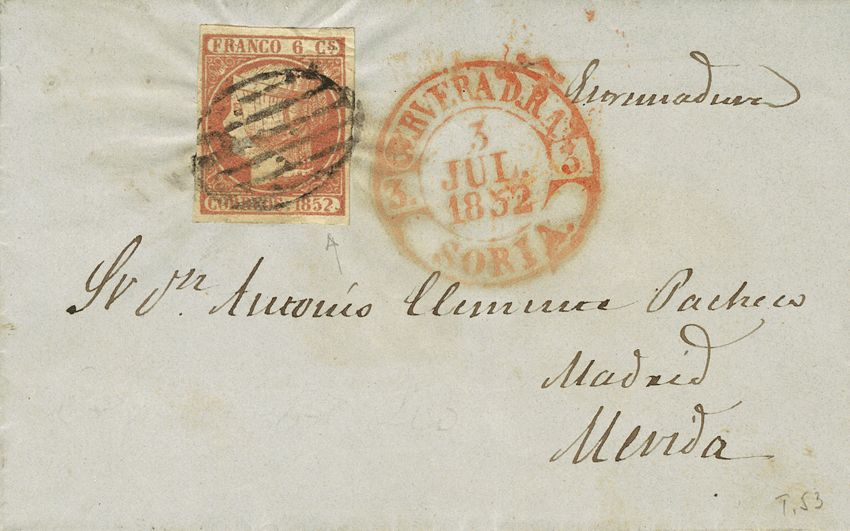 FRANCO 6 Cs
CORREOS. 1852.
CERVERA D.R.A.
3
JUL.
1852
3.
3
SORIA.
Extremadura
Sr Dn. Antonio Clemente Pacheco
Madrid
Merida
A
T.53